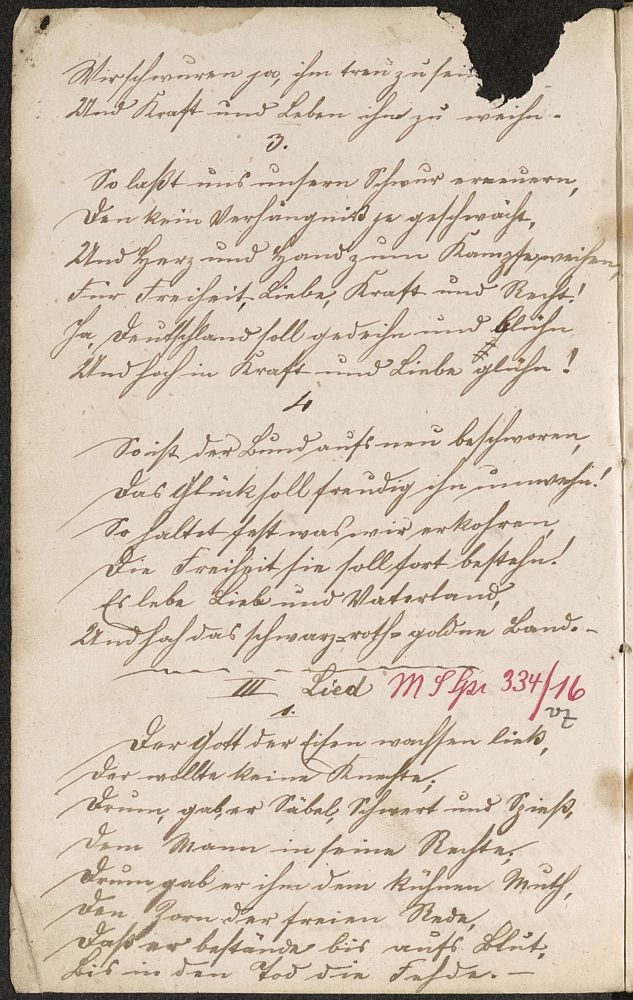 Wir schwuren ja, ihm treu zu sein
Und Kraft und Leben ihm zu weihn.
3.
So laßt uns unsern Schwur erneuern,
Den kein Verhängniß je geschwächt,
Und Herz und Hand zum Kampfe weihen,
Für Freiheit, Liebe, Kraft und Recht!
Ja, Deutschland soll gedeihn und blühn
Und hoch in Kraft und Liebe glühn!
4
So ist der Bund aufs neu beschworen,
Das Glück soll freudig ihn umwehn!
So haltet fest was wir erkohren,
Die Freiheit sie soll fort bestehn!
Es lebe Lieb und Vaterland,
Und hoch das schwarz-roth-goldne Band.-
III Lied M S Gr 334/16
vz
1.
Der Gott der Eisen wachsen ließ,
Der wollte keine Knechte;
Drum, gab er Säbel, Schwert und Spieß,
Dem Mann in seine Rechte,
Drum gab er ihm dem kühnen Muth,
Den Zorn der freien Rede,
Daß er bestände bis aufs Blut,
Bis in den Tod die Fehde.-